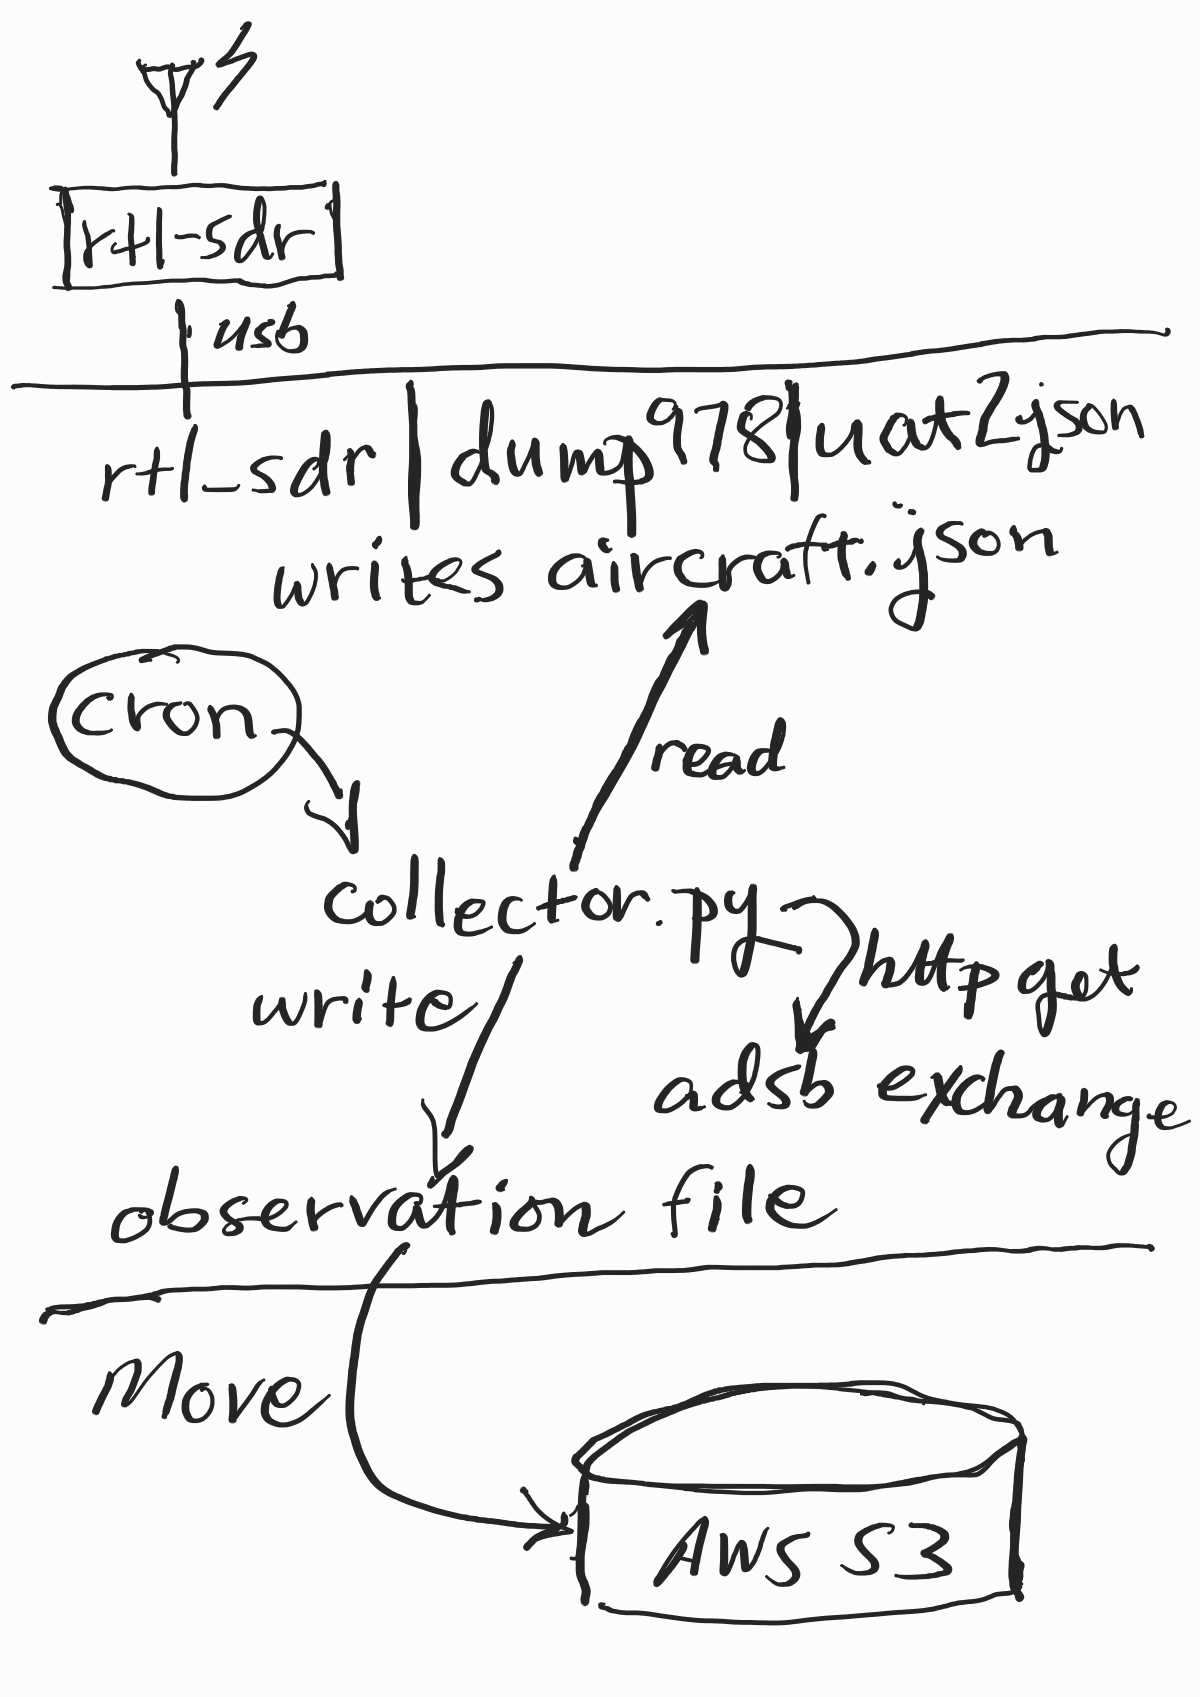 rtl-sdr
usb
rtl_sdr | dump978 | uat2json
writes aircraft.json
cron
read
collector.py
http get
write
adsb exchange
observation file
Move
AWS S3